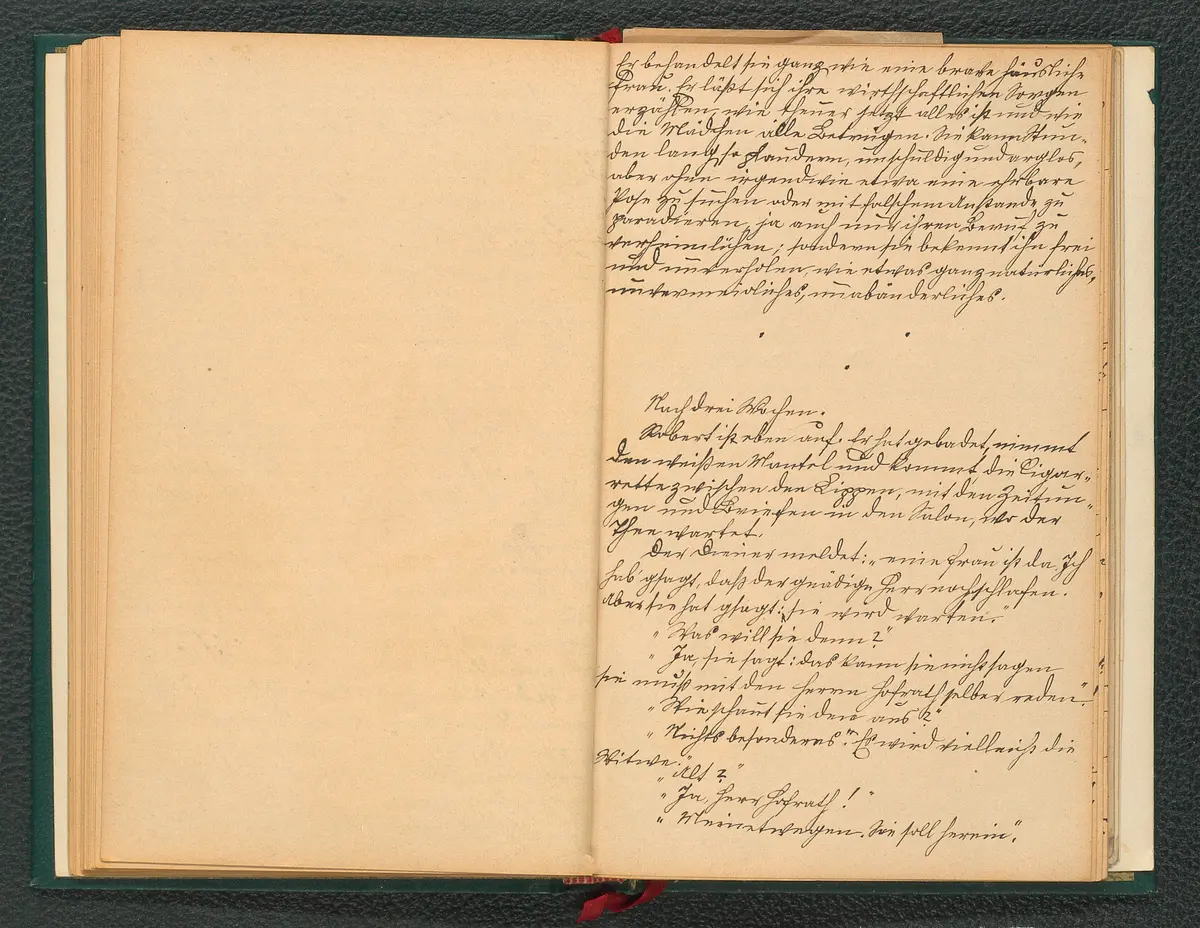 Er behandelt sie ganz wie eine brave häusliche
Frau. Er läßt sich ihre wirthschaftlichen Sorgen
erzählen, wie theuer jetzt alles ist und wie
die Mädchen alle betrügen. Sie kann Stun-
den lang so plaudern, unschuldig und arglos,
aber ohne irgendwie etwa eine ehrbare
Pose zu suchen oder mit falschem Anstande zu
paradieren, ja auch nur ihren Beruf zu
verheimlichen; sondern sie bekennt ihn frei
und unverholen, wie etwas ganz natürliches,
unvermeidliches, unabänderliches.
Nach drei Wochen.
Robert ist eben auf. Er hat gebadet, nimmt
den weißen Mantel und kommt, die Cigar-
rette zwischen den Lippen, mit den Zeitun-
gen und Briefen in den Salon, wo der
Thee wartet.
Der Diener meldet: „eine Frau ist da. Ich
hab' gsagt, daß der gnädige Herr noch schlafen.
Aber sie hat gsagt: sie wird warten."
„Was will sie denn?"
„Ja, sie sagt: das kann sie nicht sagen
sie muß mit den Herrn Hofrath selber reden"!
„Wie schaut sie den aus?"
„Nichts besonderes". Es wird vielleicht die
Witwe."
„Alt?"
„Ja, Herr Hofrath!"
„Meinetwegen. Sie soll herein".